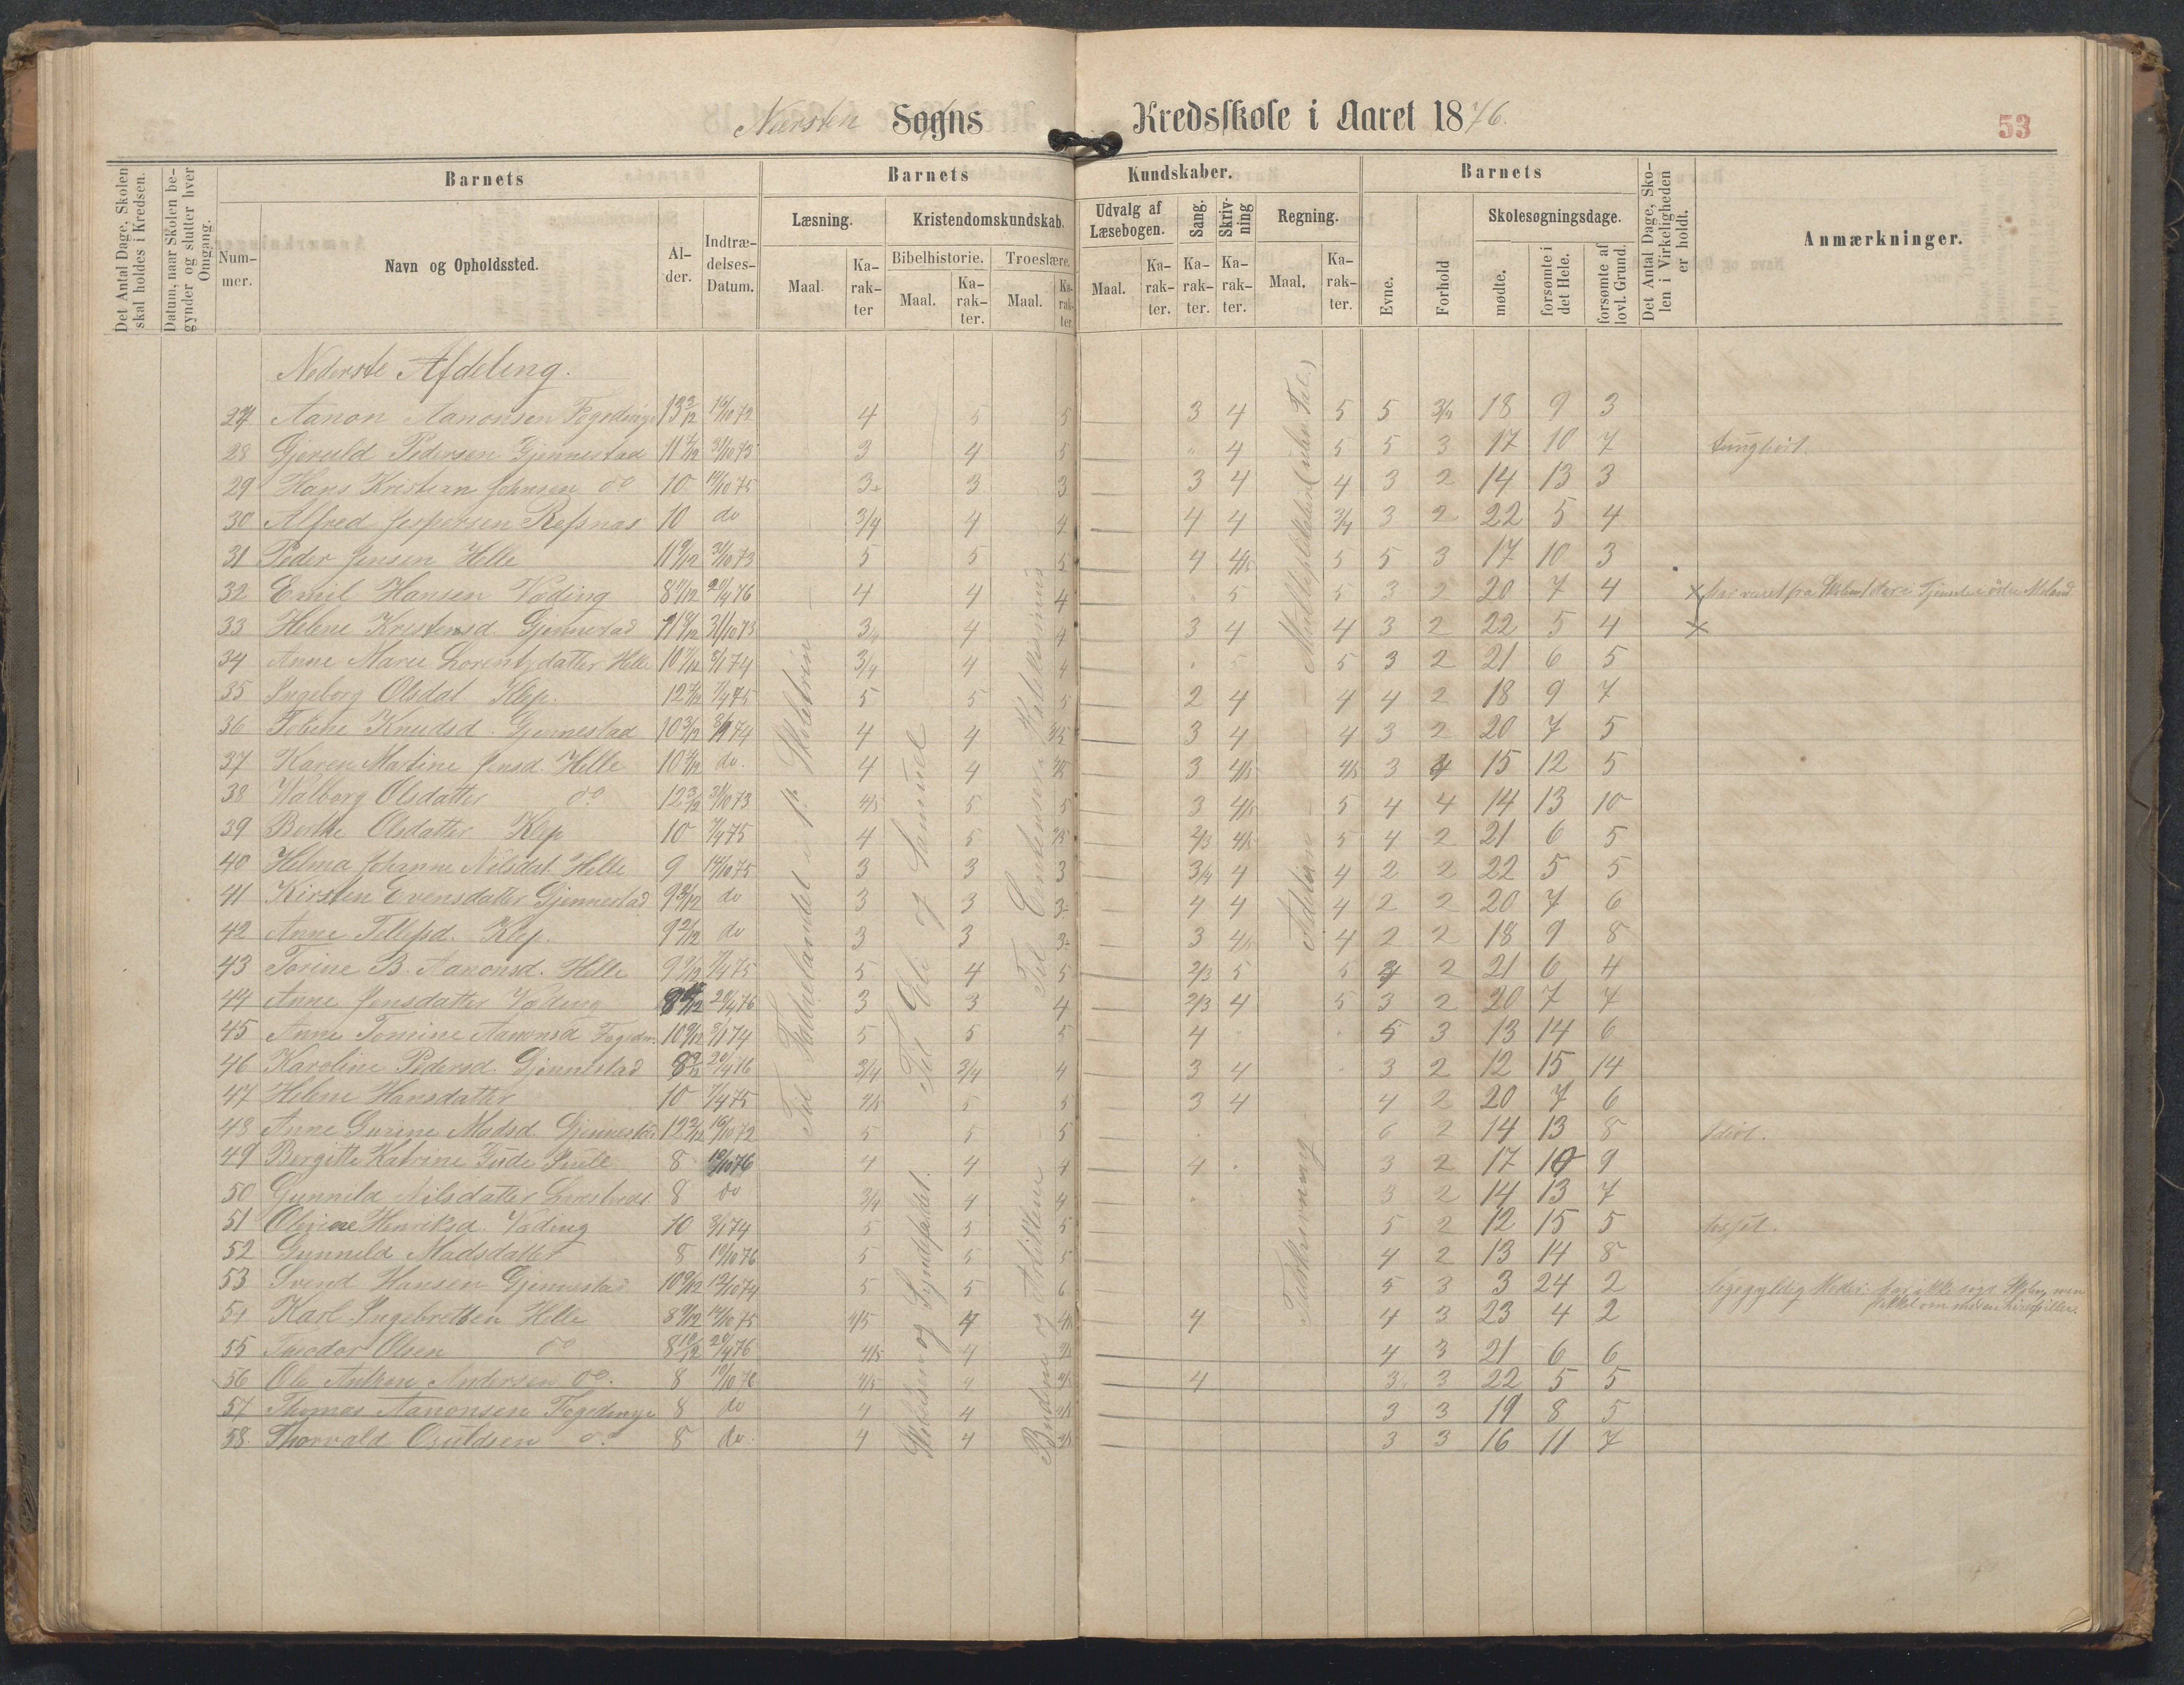 Nærsten Sogns Kredsskole i Aaret 1876.
53
Det Antal Dage, Skolen skal holdes i Kredsen.
Datum, naar Skolen begynder og slutter hver Omgang.
Barnets
Nummer.
Navn og Opholdssted.
Alder.
Indtrædelses-Datum.
Barnets Kundskaber.
Læsning.
Maal.
Karakter
Kristendomskundskab.
Bibelhistorie.
Maal.
Karakter.
Troeslære.
Maal.
Karakter
Udvalg af Læsebogen.
Maal.
Karakter.
Sang.
Karakter.
Skrivning
Karakter.
Regning.
Maal.
Karakter.
Barnets
Evne.
Forhold
Skolesøgningsdage.
mødte.
forsømte i det Hele.
forsømte af lovl. Grund.
Det Antal Dage, Skolen i Virkeligheden er holdt.
Anmærkninger.
Nederste Afdeling.
27 Aanon Aanonsen 4 5 5 3 4 5 5 3/4 18 9 3
28 Gjeruld Pedersen Gjennestad 3 4 5 4 5 5 3 17 10 7 tunghört.
29 Hans Kristian Johnsen do 10 14/10 75 3 3 3 3 4 4 3 2 14 13 3
30 Alfred Jespersen Refsnæs 10 do 3/4 4 4 4 4 3/4 3 2 22 5 4
31 Peder Jensen Helle 11 9/12 31/10 73 5 5 5 4 4/5 5 5 3 17 10 3
32 Emil Hansen Væding 20/4 76 4 4 4 5 5 3 2 20 7 4
33 Helene Kristensd. Gjennestad 31/10 73 3/4 4 4 3 4 4 3 2 22 5 4
34 Anne Marie Lorentzdatter Helle 8/1 74 3/4 4 4 5 5 3 2 21 6 5
35 Ingeborg Olsdat Klep. 7/4 75 5 5 5 2 4 4 4 2 18 9 7
36 Tobine Knudsd. Gjennestad 10 3/12 8/1 74 4 4 4/5 3 4 4 3 2 20 7 5
37 Karen Martine Jensd. Helle do. 4 4 4/5 3 4/5 4/5 3 4 15 12 5
38 Valborg Olsdatter do 12 3/12 31/10 73 4/5 5 5 3 4/5 5 4 4 14 13 10
39 Berthe Olsdatter Klep 10 7/4 75 4 5 4/5 2/3 4/5 5 4 2 21 6 5
40 Helma Johanne Nilsdat. Helle 9 14/10 75 3 3 3 3/4 4 4 2 2 22 5 5
41 Kirsten Evensdatter Gjennestad 9 3/12 do 3 3 3 4 4 4 2 2 20 7 6
42 Anne Tellefsd. Klep. 9 2/12 do 3 3 3 3 4/5 4 2 2 18 9 8
43 Torine B. Aanonsd. Helle 7/4 75 5 4 5 2/3 5 5 4 2 21 6 4
44 Anne Jensdatter Væding 20/4 76 3 3 4 2/3 4 5 3 2 20 7 7
45 Anne Tomine Aanonsd 10 9/12 8/1 74 5 5 5 4 5 3 13 14 6
46 Karoline Pedersd. Gjennestad 20/4 76 3/4 3/4 4 3 4 3 2 12 15 14
47 Helene Hansdatter 10 7/4 75 4/5 5 5 3 4 4 2 20 7 6
48 Anne Gurine Madsd. Gjennestad 12 2/12 5 5 5 6 2 14 13 8 Idiot.
49 Bergitte Katrine 8 19/10 76 4 4 4 4 3 2 17 10 9
50 Gunnild Nilsdatter 8 do 3/4 4 4 3 2 14 13 7
51 Henriksd. Væding 10 8/1 74 5 5 5 5 2 12 15 5
52 Gunnild Madsdatter 8 19/10 76 5 5 5 4 2 13 14 8
53 Svend Hansen Gjennestad 10 9/12 12/10 74 5 5 6 5 3 3 24 2
54 Karl Ingebretsen Helle 8 9/12 14/10 75 4/5 4 4/5 4 4 3 23 4 2
55 Teodor Olsen do 8 10/12 20/4 76 4/5 4 4 3 21 6 6
56 Ole Andersen do. 8 19/10 76 4/5 4 4/5 4 3 3 22 5 5
57 Thomas Aanonsen 8 do 4 4 4/5 3 3 19 8 5
58. Thorvald Osuldsen do 8 do. 4 4 4/5 3 3 16 11 7
Til Fædrelandet i 1ste Skoletrin
Til Eli og Samuel
Skabelsen og Syndefaldet.
Til
Budene og Artiklene